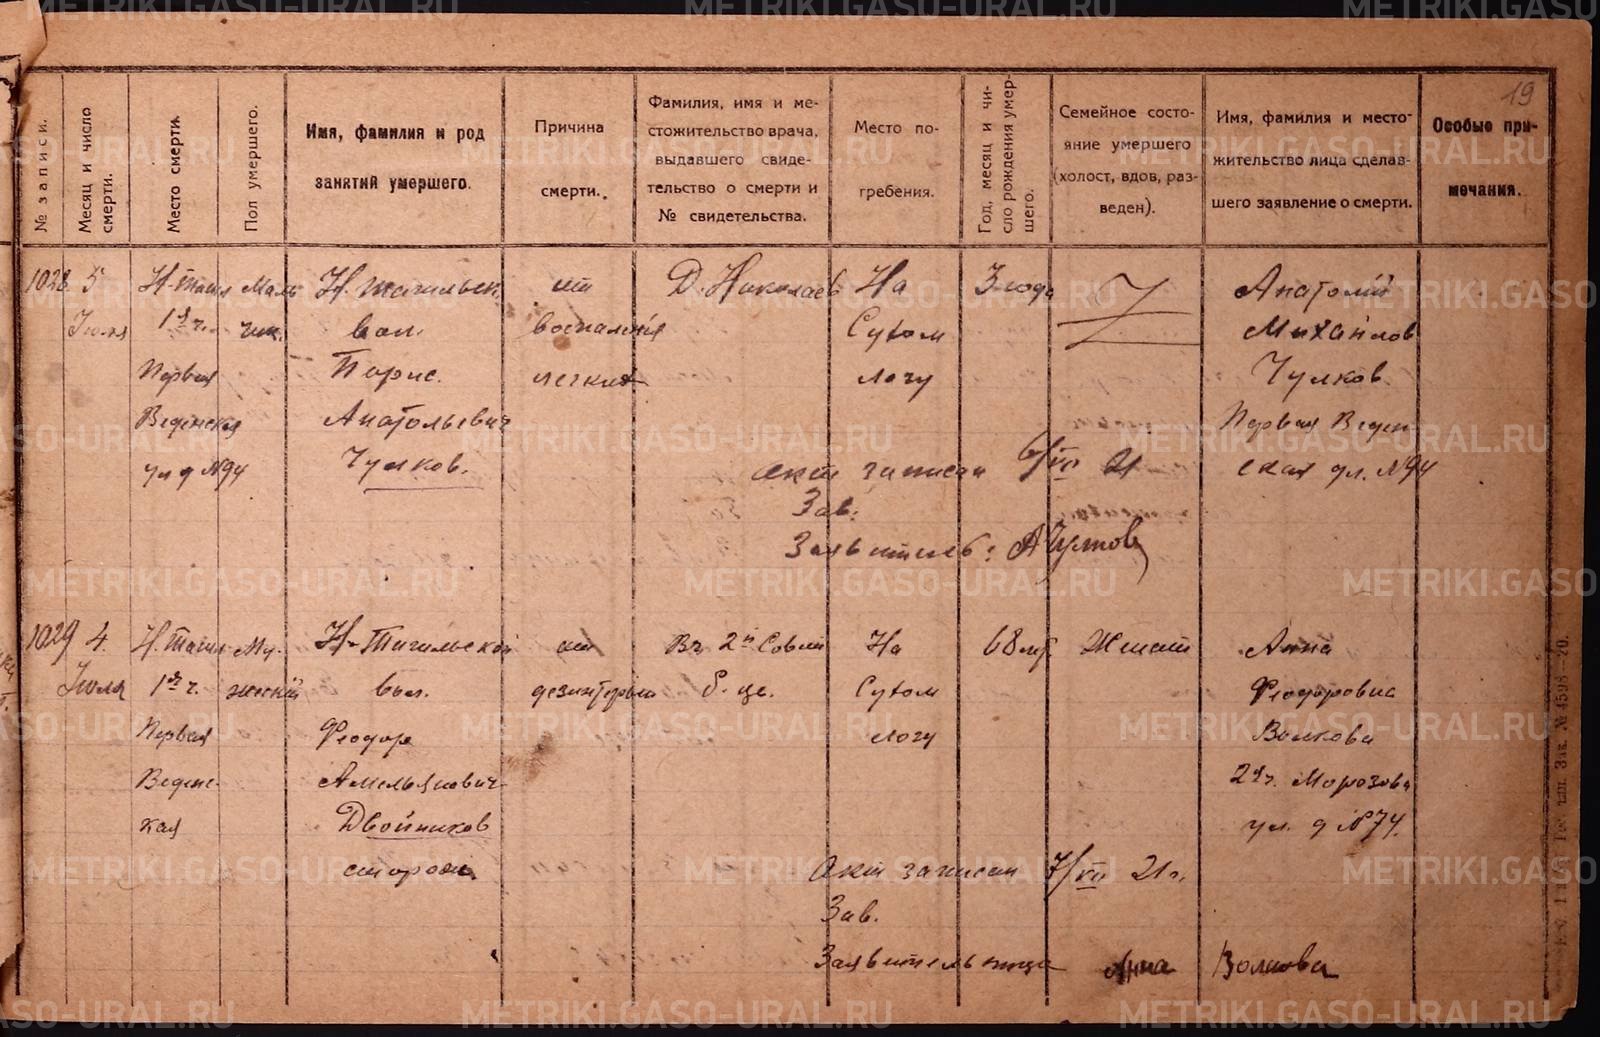 19
№ записи.
Месяц и число смерти.
Место смерти.
Пол умершего.
Имя, фамилия и род
занятий умершего.
Причина
смерти.
Фамилия, имя и ме-
стожительство врача,
выдавшего свиде-
тельство о смерти и
№ свидетельства.
Место по-
гребения.
Год, месяц и чи-
сло рождения умер-
шего.
Семейное состо-
яние умершего
(холост, вдов, раз-
веден).
Имя, фамилия и место-
жительство лица сделав-
шего заявление о смерти.
Особые при-
мечания.
1028
5
Июля
Н-Тагил
1я ч.
Первая
Веденская
ул д №94
Маль
чик.
Н. Тагильск.
вол.
Анатольевич
Чулков.
от
воспаления
легких
Д. Николаев
На
Сухом
логу
3 года
Анатолий
Михайлов
Чулков
Первая Веден
ская ул. №94
Акт записан 6/VII 21
Зав.
Заявитель: АЧулков
1029
4.
Июля
Н. Тагил
1я ч.
Первая
Веденс-
кая
Му-
жской
Н-Тагильской
вол.
Феодор
Амельянович
Двойников
сторож
от
дезинтерии
Въ 2й Совет
б-це.
На
Сухом
логу
68 л
Женат
Анна
Феодоровна
Волкова
2я ч. Морозова
ул. д №74.
Акт записан 7/VII 21 г.
Зав.
Заявительница Анна Волкова
METRIKI.GASO-URAL.RU